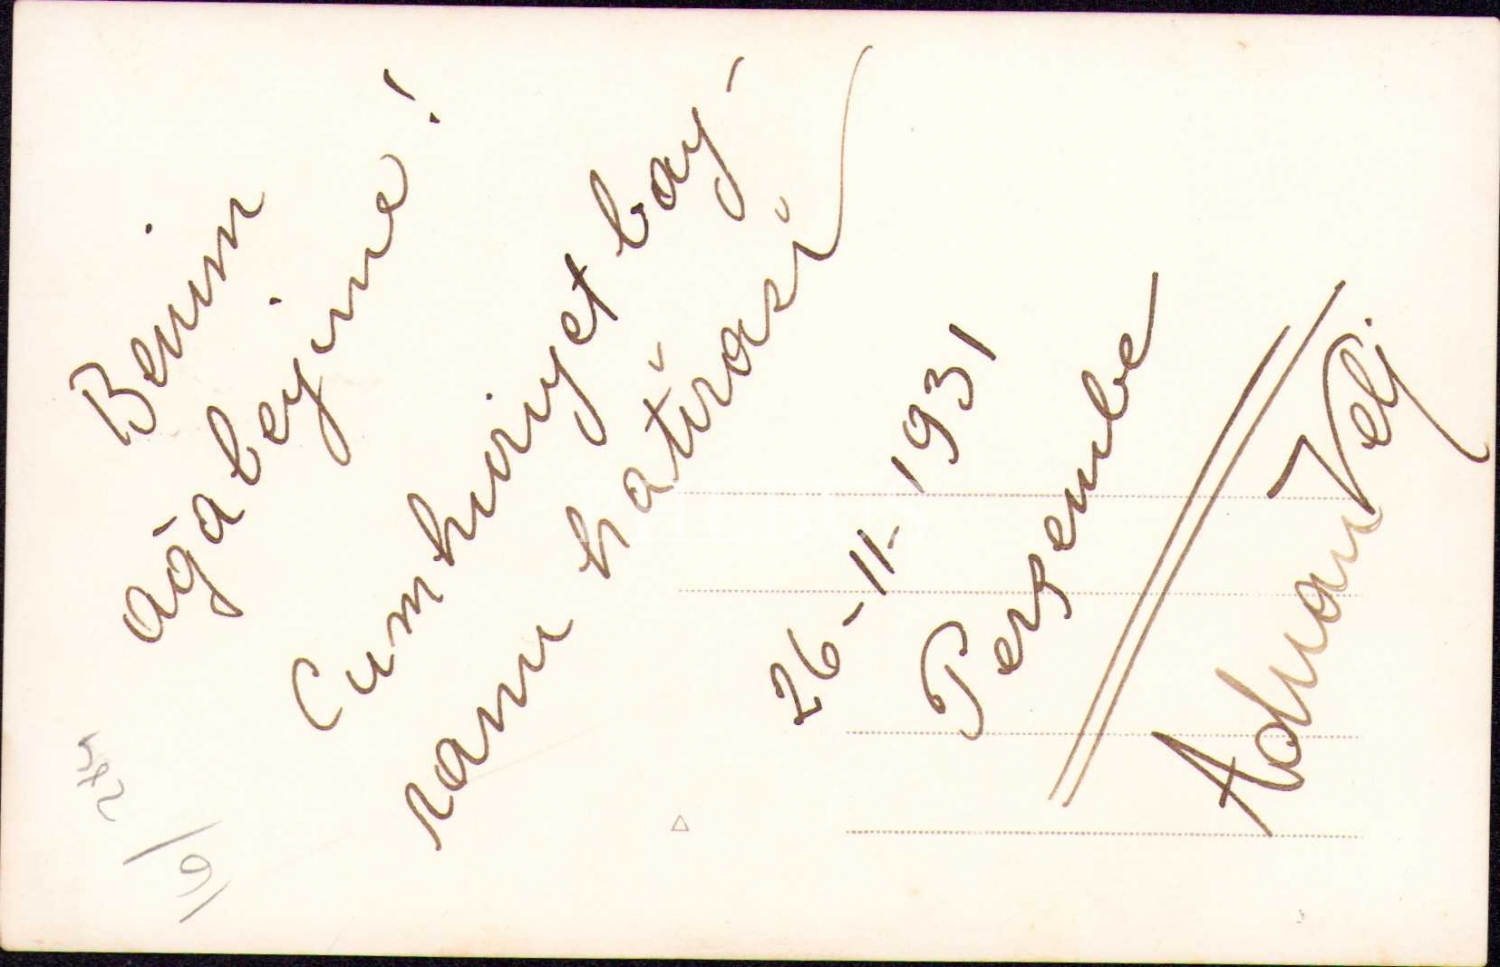 Benim
ağabeyime!
Cumhuriyet bay-
ramı hatırası
26-11-1931
Perşembe
Adnan Veli
PHEBUS